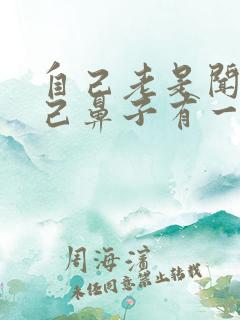 自己老是闻
己鼻子有一
周海滨
未经同意禁止转载